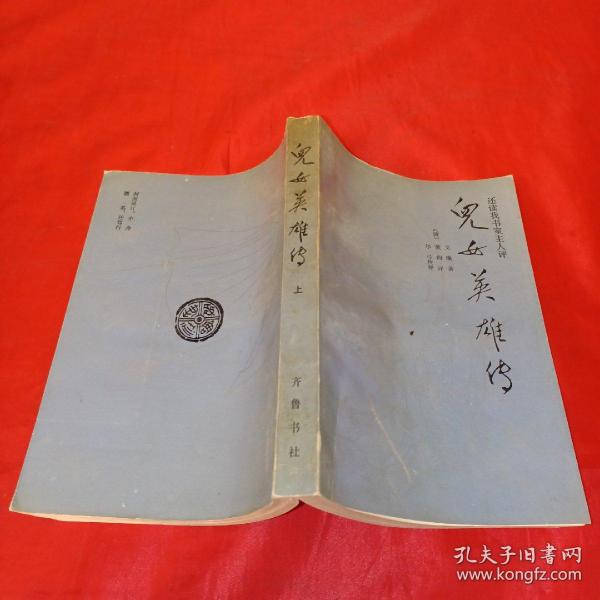 还读我书室主人评
兒女英雄传
[清]文康 著
董恂 评
尔弓 校释
兒女英雄传
上
齐鲁书社
孔夫子旧书网
www.kongfz.com